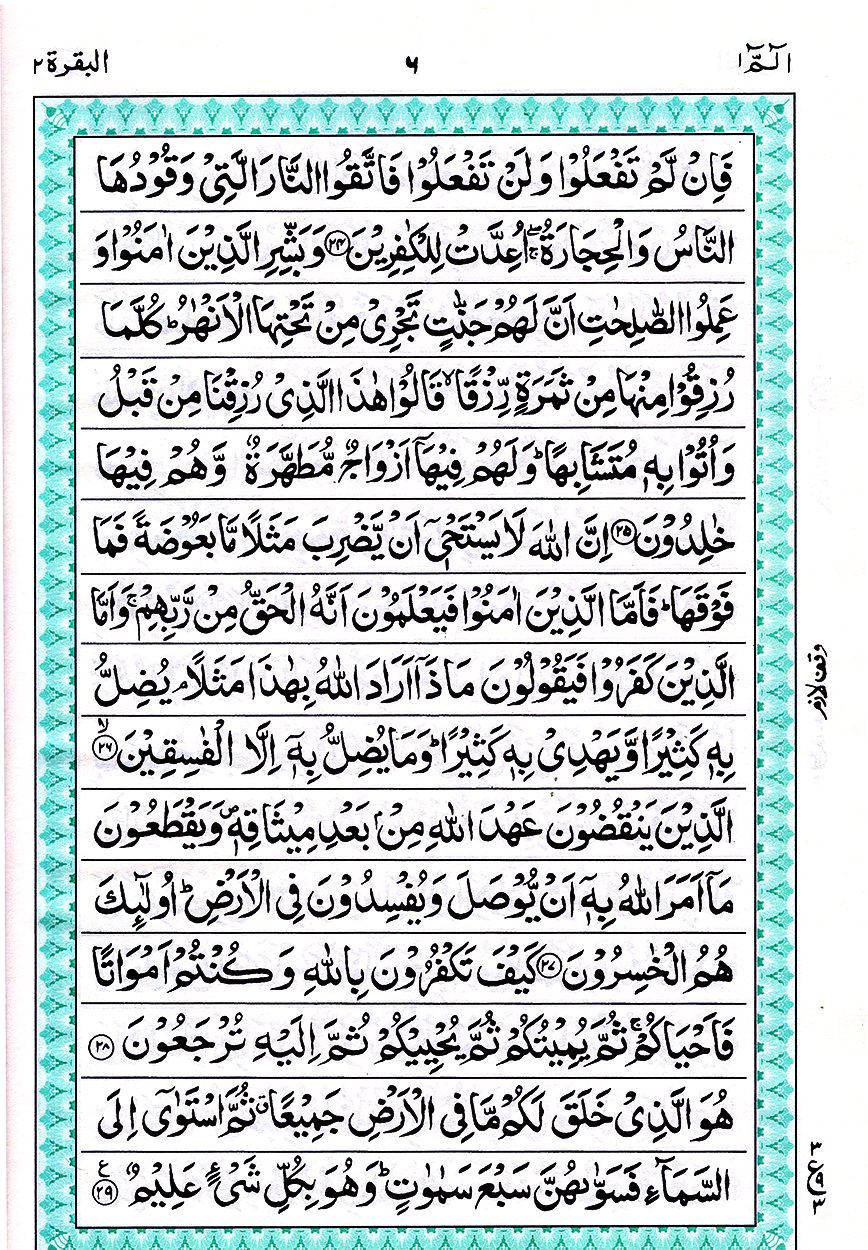 الٓمّٓ ۱ ۶ البقرة ۲
فَاِنْ لَّمْ تَفْعَلُوْا وَلَنْ تَفْعَلُوْا فَاتَّقُوا النَّارَ الَّتِىْ وَقُوْدُهَا
النَّاسُ وَالْحِجَارَةُ ۖۚ اُعِدَّتْ لِلْكٰفِرِيْنَ ﴿۲۴﴾ وَبَشِّرِ الَّذِيْنَ اٰمَنُوْا وَ
عَمِلُوا الصّٰلِحٰتِ اَنَّ لَهُمْ جَنّٰتٍ تَجْرِىْ مِنْ تَحْتِهَا الْاَنْهٰرُ ؕ كُلَّمَا
رُزِقُوْا مِنْهَا مِنْ ثَمَرَةٍ رِّزْقًا ۙ قَالُوْا هٰذَا الَّذِىْ رُزِقْنَا مِنْ قَبْلُ
وَاُتُوْا بِهٖ مُتَشَابِهًا ؕ وَلَهُمْ فِيْهَآ اَزْوَاجٌ مُّطَهَّرَةٌ وَّهُمْ فِيْهَا
خٰلِدُوْنَ ﴿۲۵﴾ اِنَّ اللّٰهَ لَا يَسْتَحْىٖٓ اَنْ يَّضْرِبَ مَثَلًا مَّا بَعُوْضَةً فَمَا
فَوْقَهَا ؕ فَاَمَّا الَّذِيْنَ اٰمَنُوْا فَيَعْلَمُوْنَ اَنَّهُ الْحَقُّ مِنْ رَّبِّهِمْ ۚ وَاَمَّا
الَّذِيْنَ كَفَرُوْا فَيَقُوْلُوْنَ مَاذَآ اَرَادَ اللّٰهُ بِهٰذَا مَثَلًا ۘ يُضِلُّ
وقف لازم
بِهٖ كَثِيْرًا وَّيَهْدِىْ بِهٖ كَثِيْرًا ؕ وَمَا يُضِلُّ بِهٖٓ اِلَّا الْفٰسِقِيْنَ ۙ﴿۲۶﴾
الَّذِيْنَ يَنْقُضُوْنَ عَهْدَ اللّٰهِ مِنْۢ بَعْدِ مِيْثَاقِهٖ ۪ وَيَقْطَعُوْنَ
مَآ اَمَرَ اللّٰهُ بِهٖٓ اَنْ يُّوْصَلَ وَيُفْسِدُوْنَ فِى الْاَرْضِ ؕ اُولٰٓئِكَ
هُمُ الْخٰسِرُوْنَ ﴿۲۷﴾ كَيْفَ تَكْفُرُوْنَ بِاللّٰهِ وَكُنْتُمْ اَمْوَاتًا
فَاَحْيَاكُمْ ۚ ثُمَّ يُمِيْتُكُمْ ثُمَّ يُحْيِيْكُمْ ثُمَّ اِلَيْهِ تُرْجَعُوْنَ ﴿۲۸﴾
هُوَ الَّذِىْ خَلَقَ لَكُمْ مَّا فِى الْاَرْضِ جَمِيْعًا ۗ ثُمَّ اسْتَوٰٓى اِلَى
السَّمَآءِ فَسَوّٰىهُنَّ سَبْعَ سَمٰوٰتٍ ؕ وَهُوَ بِكُلِّ شَىْءٍ عَلِيْمٌ ﴿۲۹﴾ ع
۳
ع ۹
۳